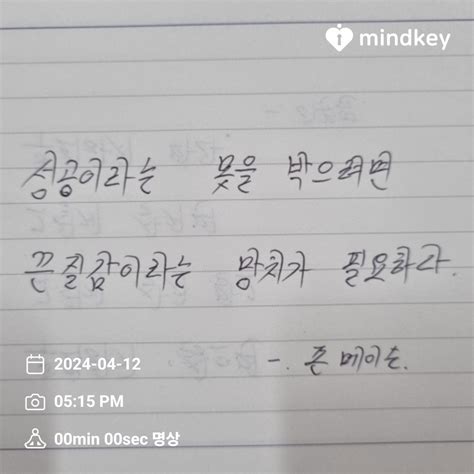 mindkey
성공이라는 못을 박으려면
끈질김이라는 망치가 필요하다.
-. 존 메이슨.
2024-04-12
05:15 PM
00min 00sec 명상